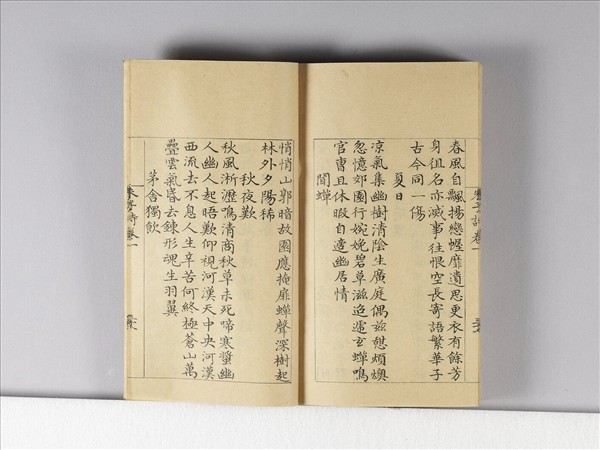 春風自飄揚戀幄靡遺思更衣有餘芳
身徂名亦滅事往恨空長寄語繁華子
古今同一傷
夏日
涼氣集幽樹清陰生廣庭偶茲慰煩燠
忽憶郊園行婉娩碧草滋玄蟬鳴
官曹且休暇自幽居情
聞蟬
悄悄山郭暗故園應掩扉蟬聲深樹起
林外夕陽稀
秋夜歎
秋風淅瀝鳴清商秋草未死啼寒螿幽
人幽人起晤歎仰視河漢天中央河漢
西流去不息人生辛苦何終極蒼山萬
疊雲氣昏去鍊形魂生羽翼
茅舍獨飲